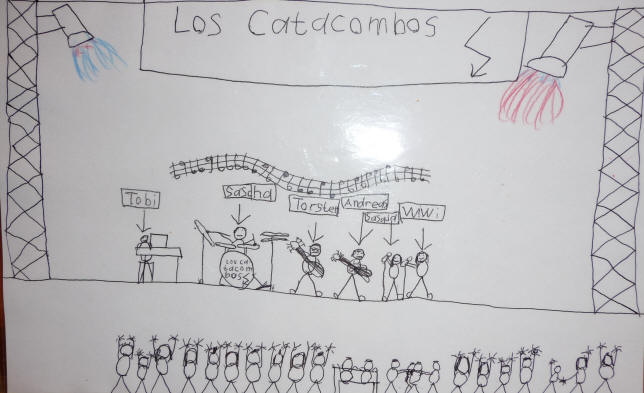 Los Catacombos
Tobi
Sascha
Torsten
Andrea
WiWi
Los Ca
tacom
bos